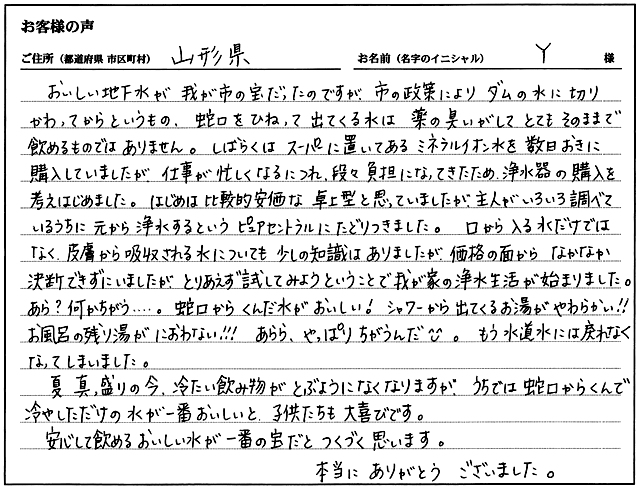 お客様の声
ご住所（都道府県 市区町村） 山形県 お名前（名字のイニシャル） Y 様
おいしい地下水が 我が市の宝だったのですが、市の政策により ダムの水に切り
かわってからというもの、蛇口をひねって出てくる水は 薬の臭いがして とてもそのままで
飲めるものではありません。しばらくは スーパーに置いてある ミネラルイオン水を 数日おきに
購入していましたが、仕事が忙しくなるにつれ、段々負担になってきたため、浄水器の購入を
考えはじめました。はじめは比較的安価な卓上型と思っていましたが、主人がいろいろ調べて
いるうちに元から浄水するという ピュアセントラルにたどりつきました。 口から入る水だけでは
なく、皮膚から吸収される水についても 少しの知識はありましたが、価格の面から なかなか
決断できずにいましたが とりあえず試してみようということで我が家の浄水生活が始まりました。
あら？何かちがう……。蛇口からくんだ水がおいしい！ シャワーから出てくるお湯がやわらかい!!
お風呂の残り湯が におわない!!! あらら、やっぱりちがうんだ。もう水道水には戻れなく
なってしまいました。
夏真っ盛りの今、冷たい飲み物が とぶようになくなりますが、うちでは蛇口からくんで
冷やしただけの水が一番おいしいと、子供たちも大喜びです。
安心して飲めるおいしい水が一番の宝だと つくづく思います。
本当に ありがとう ございました。